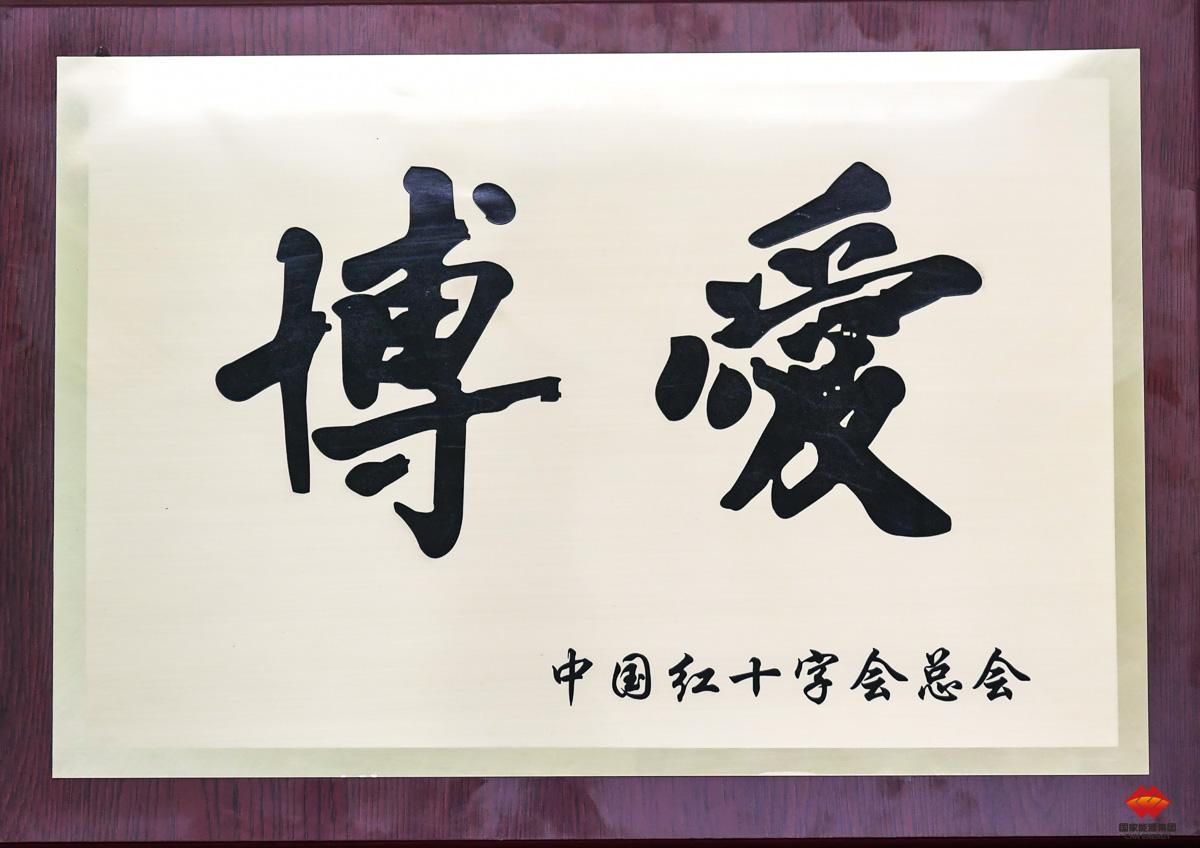 博愛
中国红十字会总会
国家能源集团